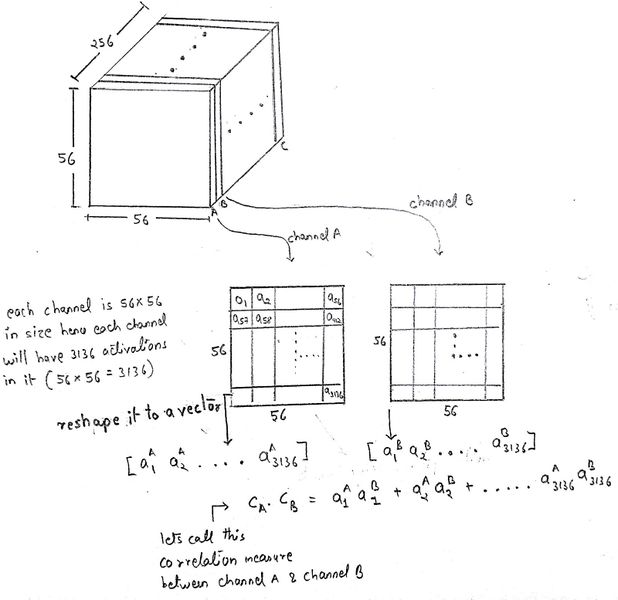 256
56
56
A
B
C
channel B
channel A
each channel is 56×56
in size hence each channel
will have 3136 activations
in it (56×56 = 3136)
a₁ a₂ a₅₆
a₅₇ a₅₈ a₁₁₂
56
a₃₁₃₆
56
56
56
reshape it to a vector
[a₁ᴬ a₂ᴬ .... a₃₁₃₆ᴬ]
[a₁ᴮ a₂ᴮ .... a₃₁₃₆ᴮ]
C_A . C_B = a₁ᴬ a₁ᴮ + a₂ᴬ a₂ᴮ + ..... a₃₁₃₆ᴬ a₃₁₃₆ᴮ
lets call this
correlation measure
between channel A & channel B